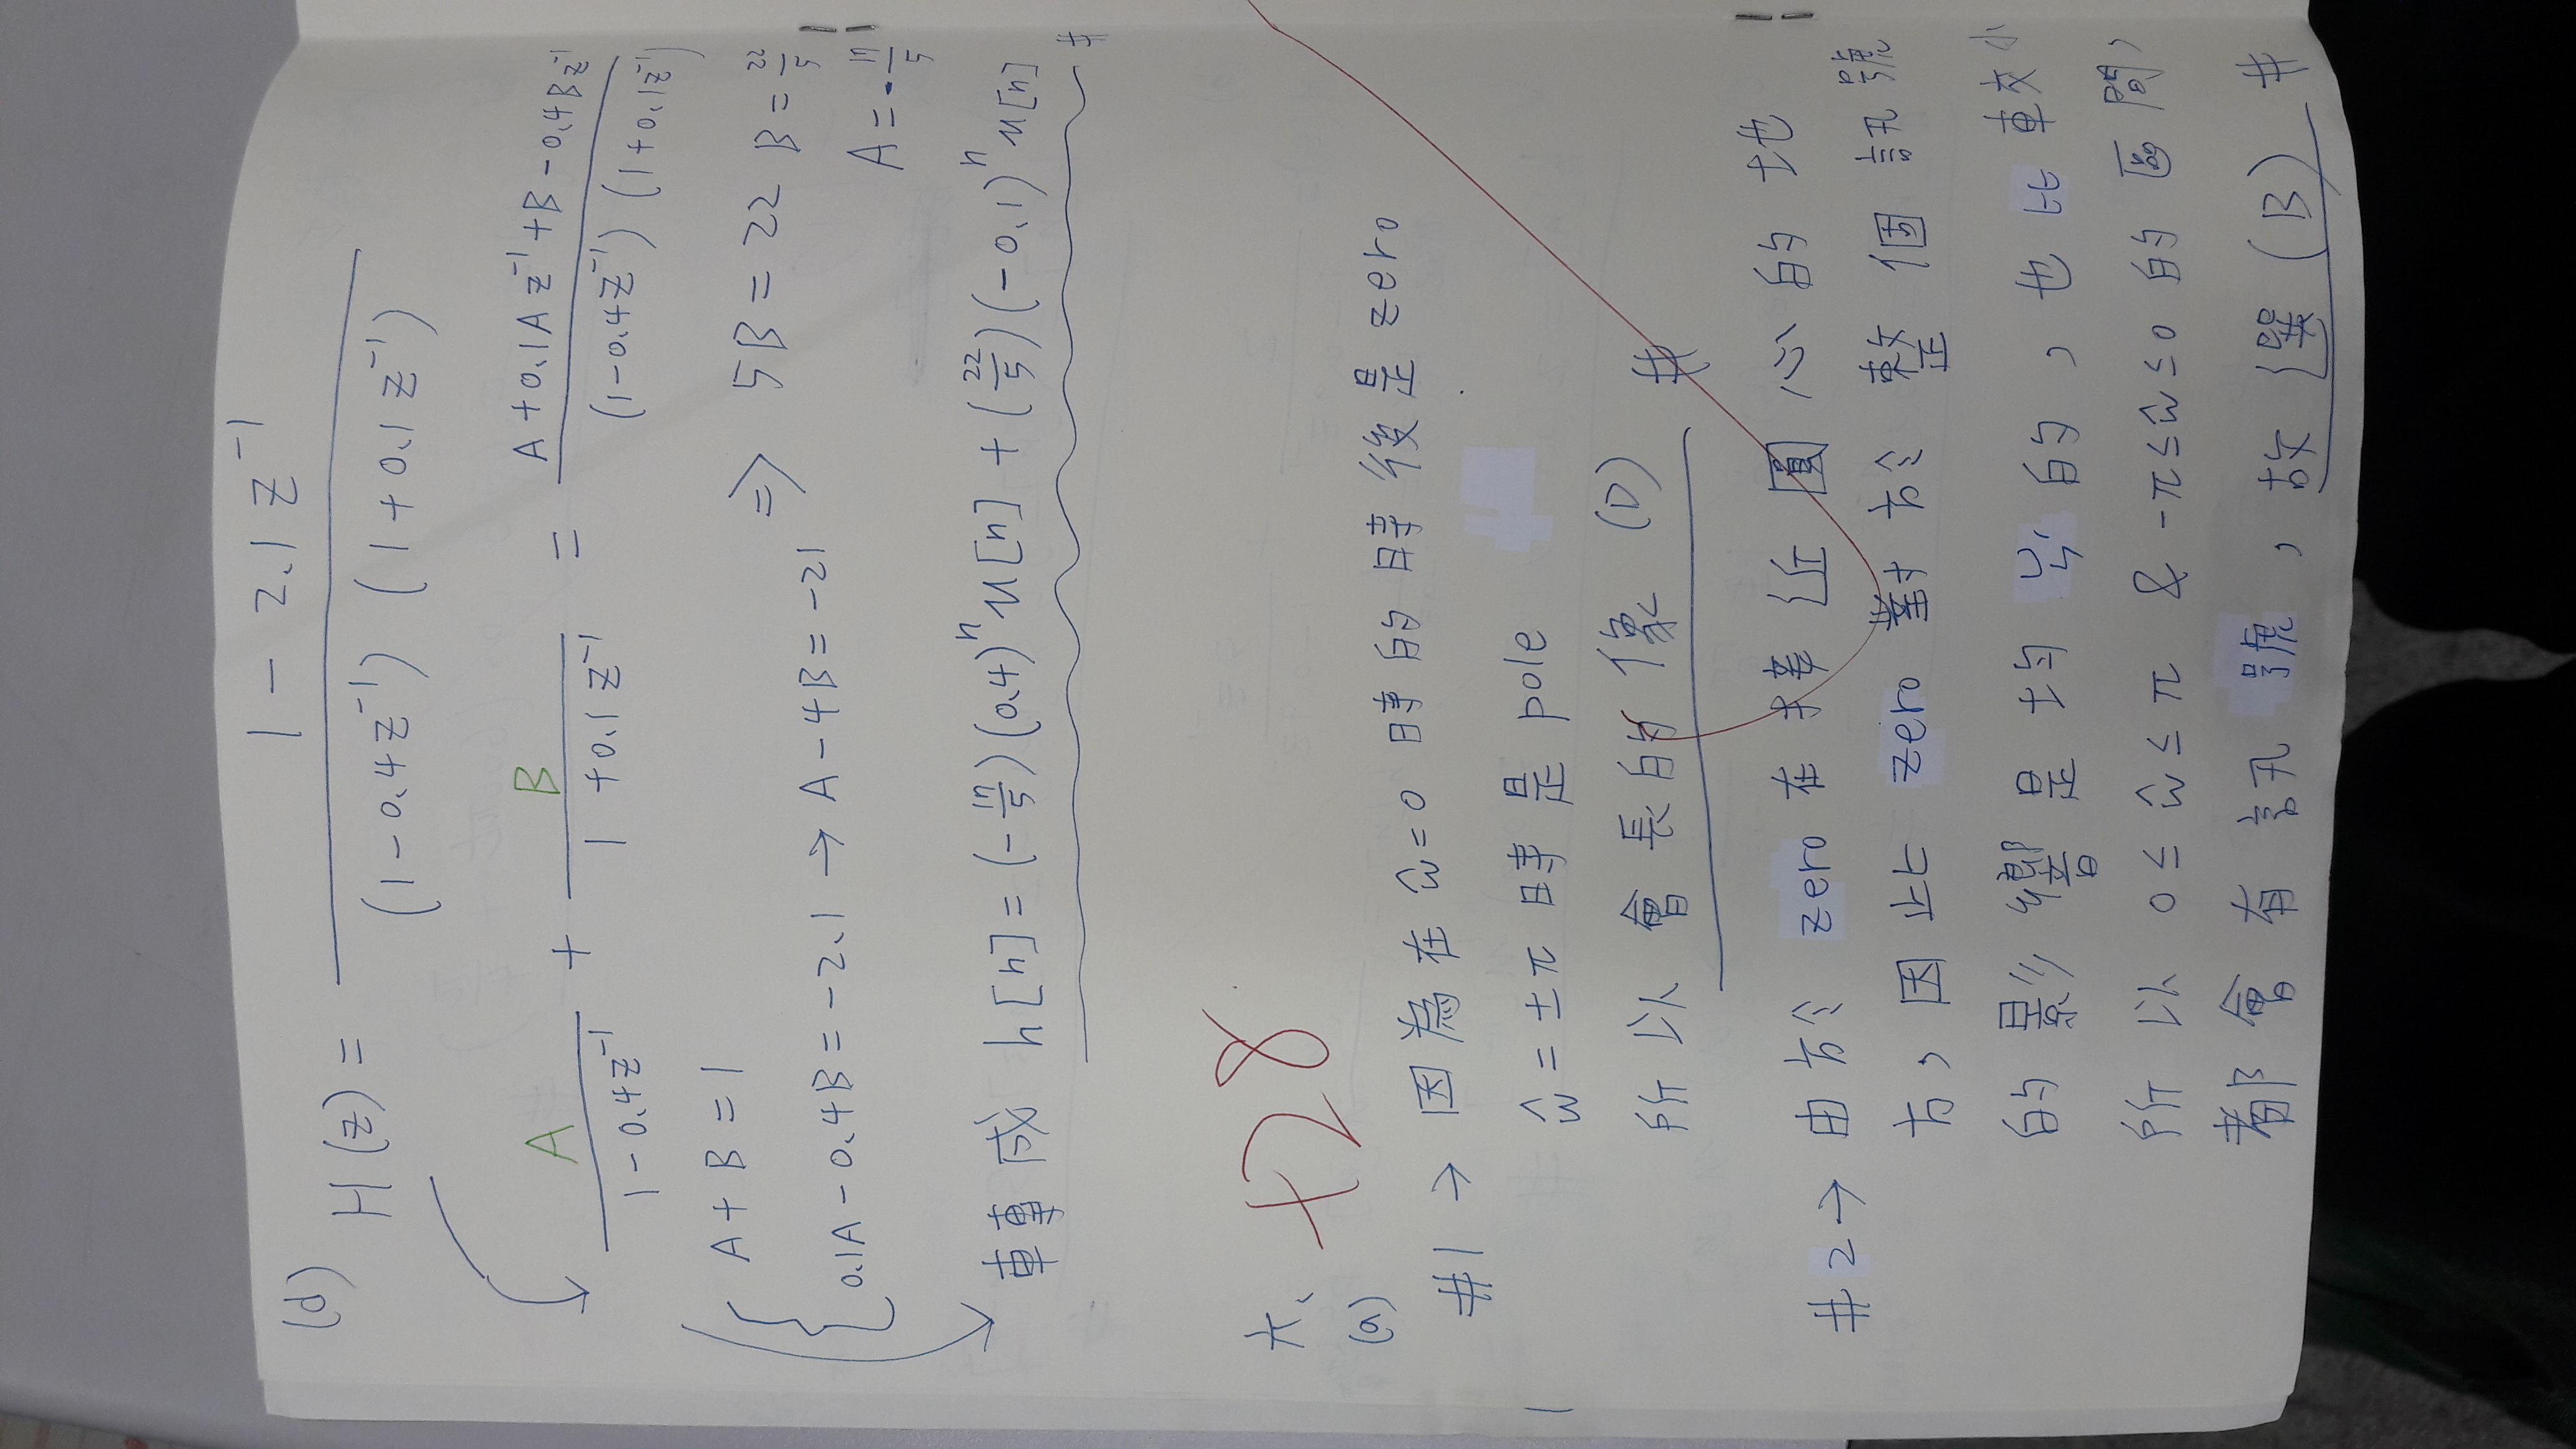 (d) H(z) = (1 - 2.1 z⁻¹) / ((1 - 0.4 z⁻¹) (1 + 0.1 z⁻¹))
A / (1 - 0.4 z⁻¹) + B / (1 + 0.1 z⁻¹) = (A + 0.1A z⁻¹ + B - 0.4B z⁻¹) / ((1 - 0.4 z⁻¹) (1 + 0.1 z⁻¹))
A + B = 1
0.1A - 0.4B = -2.1 → A - 4B = -21 ⇒ 5B = 22 B = 22/5
A = -17/5
轉成 h[n] = (-17/5)(0.4)ⁿ u[n] + (22/5)(-0.1)ⁿ u[n] #
六、 +28
(a)
#1 → 因為在 ŵ = 0 時的時後是 zero
ŵ = ±π 時是 pole
所以會長的像 (D) #
#2 → 由於 zero 在接近圓心的地
方, 因此 zero 對於整個訊號
的影響是均勻的, 也比較小
所以 0 ≤ ŵ ≤ π & -π ≤ ŵ ≤ 0 的區間,
都會有訊號, 故選 (B) #